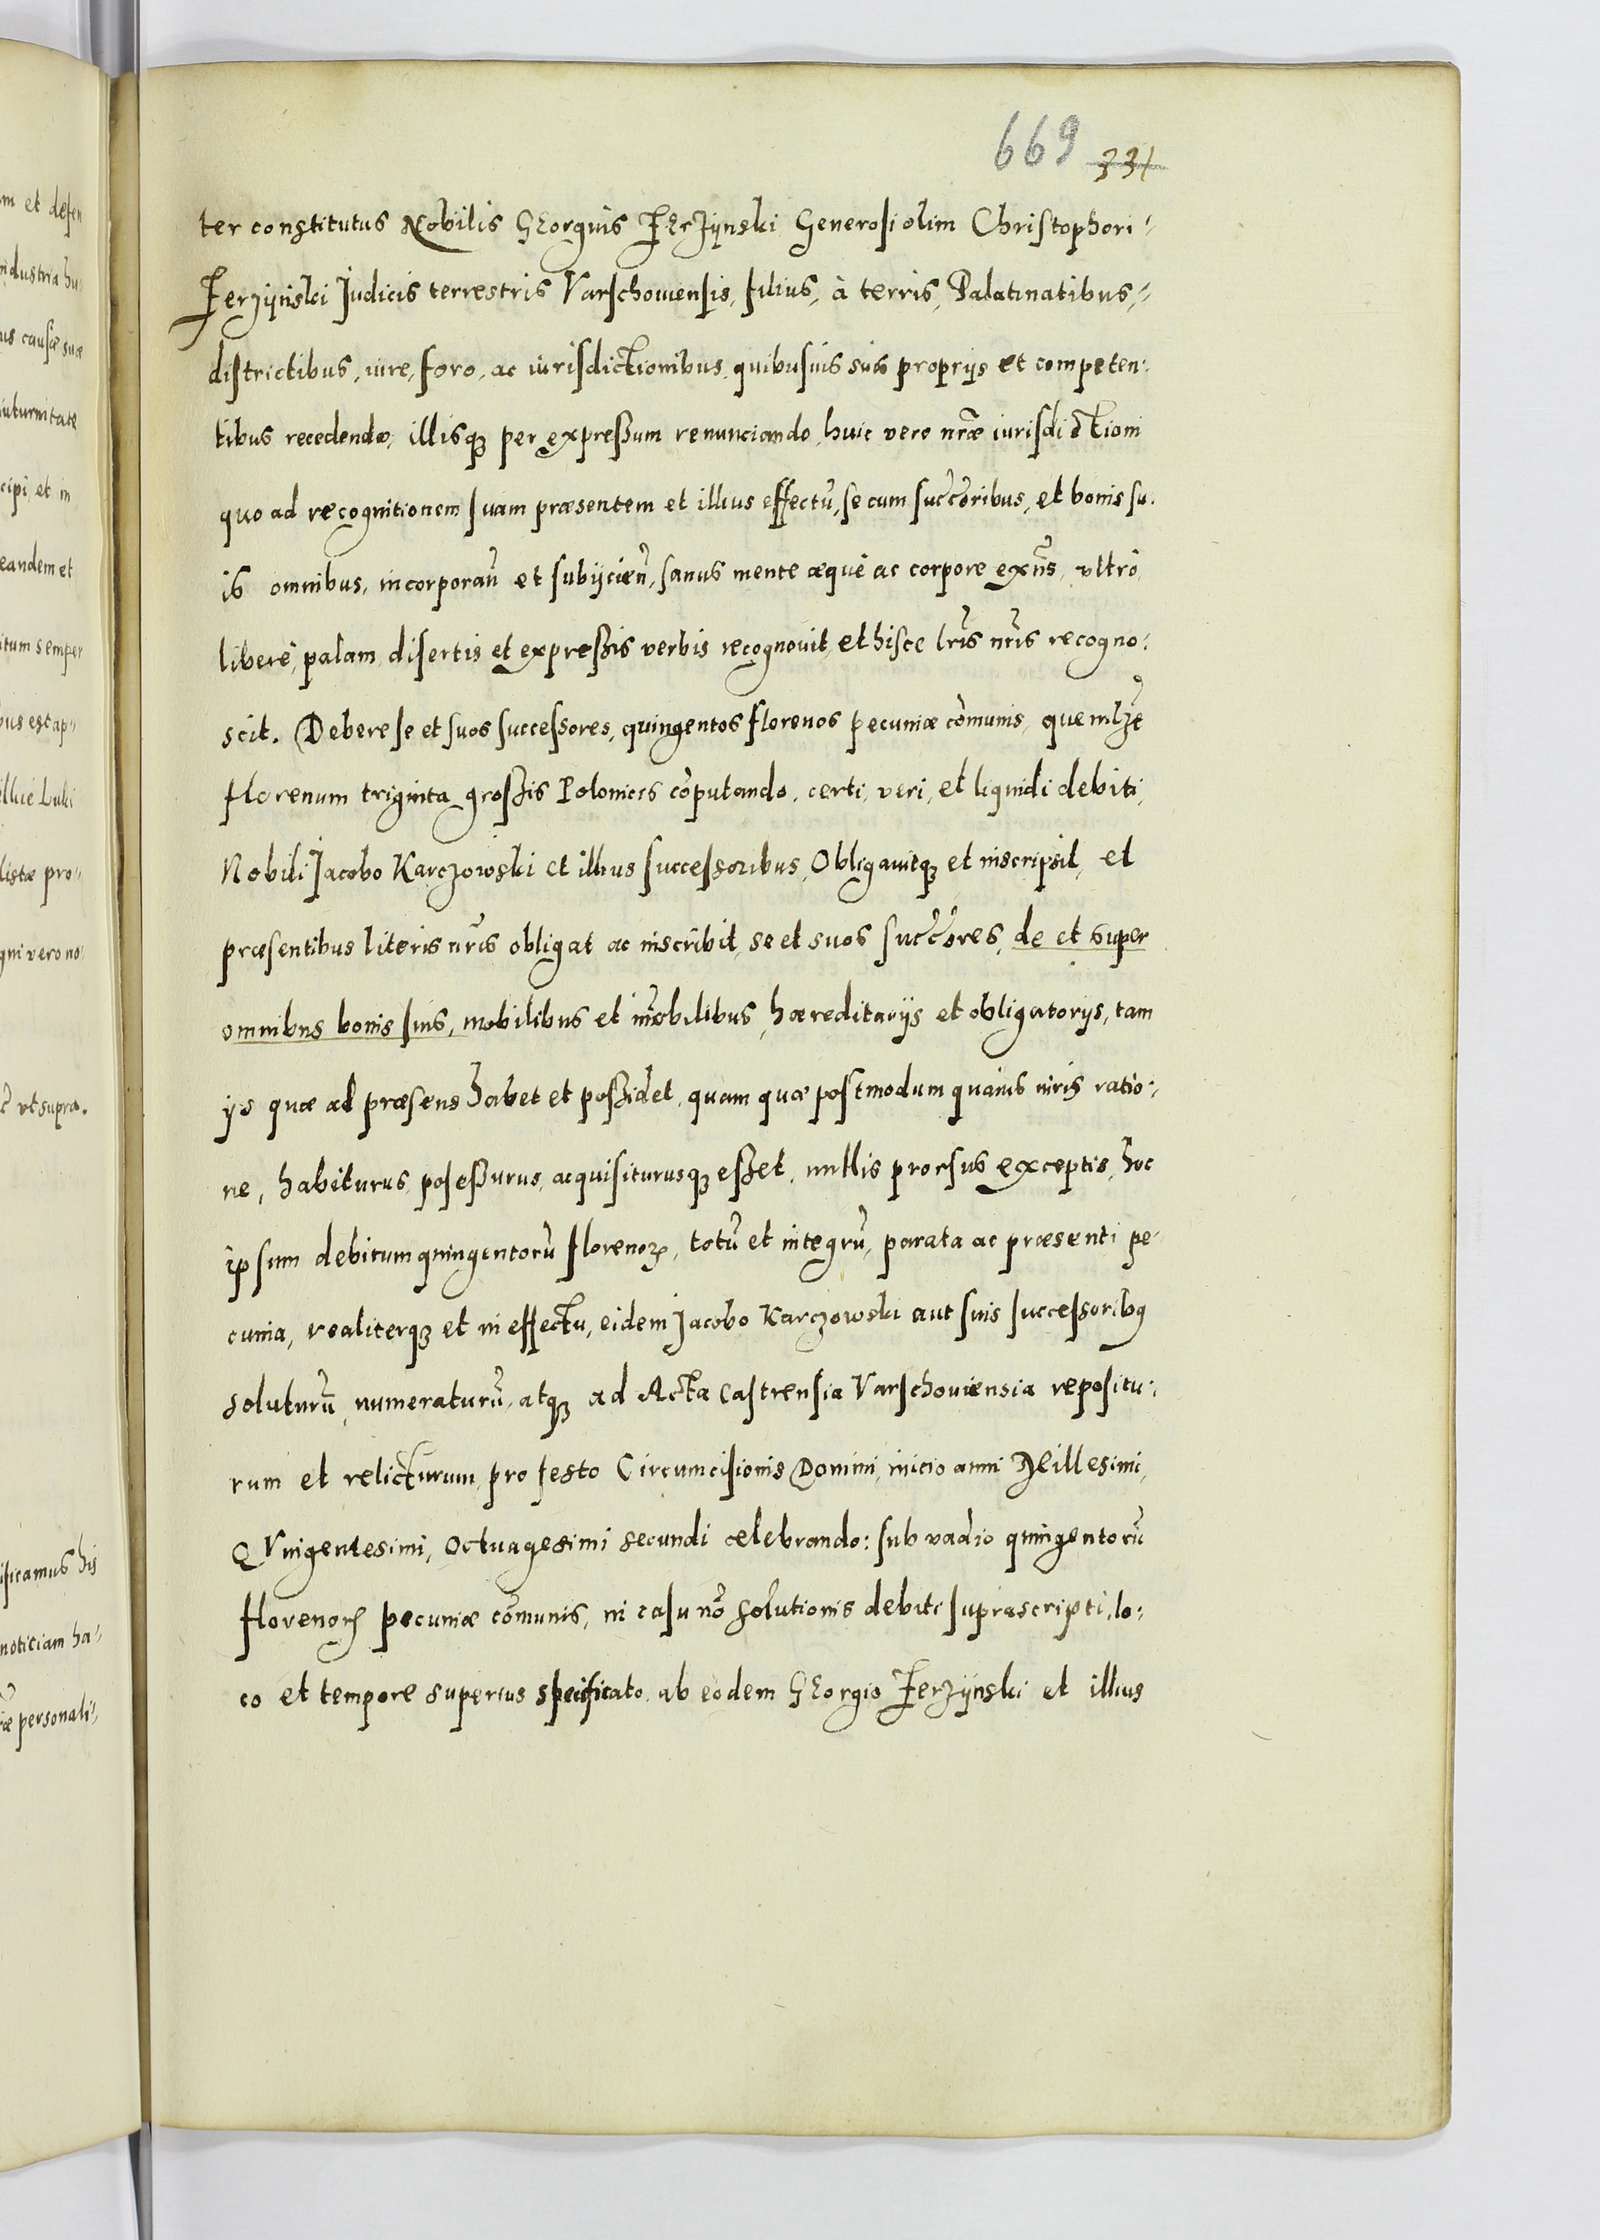 669 331
ter constitutus Nobilis GEorgius JErzÿnski Generosi olim Christophori
Jerzÿnski Judicis terrestris Varschouiensis, filius, à terris, Palatinatibus,
districtibus, iure, foro, ac iurisdictionibus quibusuis suis proprijs et competen:
tibus recedendo, illisq3 per expressum renunciando, huic vero nr̃æ iurisdictioni
quo ad recognitionem suam præsentem et illius effectũ, se cum succ̃oribus, et bonis su:
is omnibus, incorporañ et subijcieñ, sanus mente æquè ac corpore exñs, vltrò,
liberè, palam, disertis et expressis verbis recognouit, et hisce lr̃is nr̃is recogno:
scit. Debere se et suos successores, quingentos florenos pecuniæ cõmunis, quemlꝫt
florenum triginta grossis Polonicis cõputando, certi, veri, et liquidi debiti,
Nobili Jacobo Karczowski et illius successoribus, Obligauitq3 et inscripsit, et
præsentibus literis nr̃is obligat ac inscribit, se et suos succ̃ores, de et super
omnibus bonis suis, mobilibus et im̃obilibus, hæreditarijs et obligatorijs, tam
ijs quæ ad præsens habet et possidet, quam quæ postmodum quauis iuris ratio:
ne, habiturus, posessurus, acquisiturusq3 esset, nullis prorsus exceptis, hoc
ipsum debitum quingentorũ florenoꝝ, totũ et integrũ, parata ac præsenti pe:
cunia, realiterq3 et in effectu, eidem Jacobo Karczowski aut suis successoribꝰ
soluturũ, numeraturũ, atq3 ad Acta Castrensia Varschouiensia repositu:
rum et relicturum, pro festo Circumcisionis Domini, initio anni Millesimi,
QVuigentesimi, Octuagesimi secundi celebrando: sub vadio quingentorũ
florenoꝝ pecuniæ cõmunis, in casu nõ solutionis debiti suprascripti, lo:
co et tempore superius specificato, ab eodem GEorgio Jerzÿnski et illius